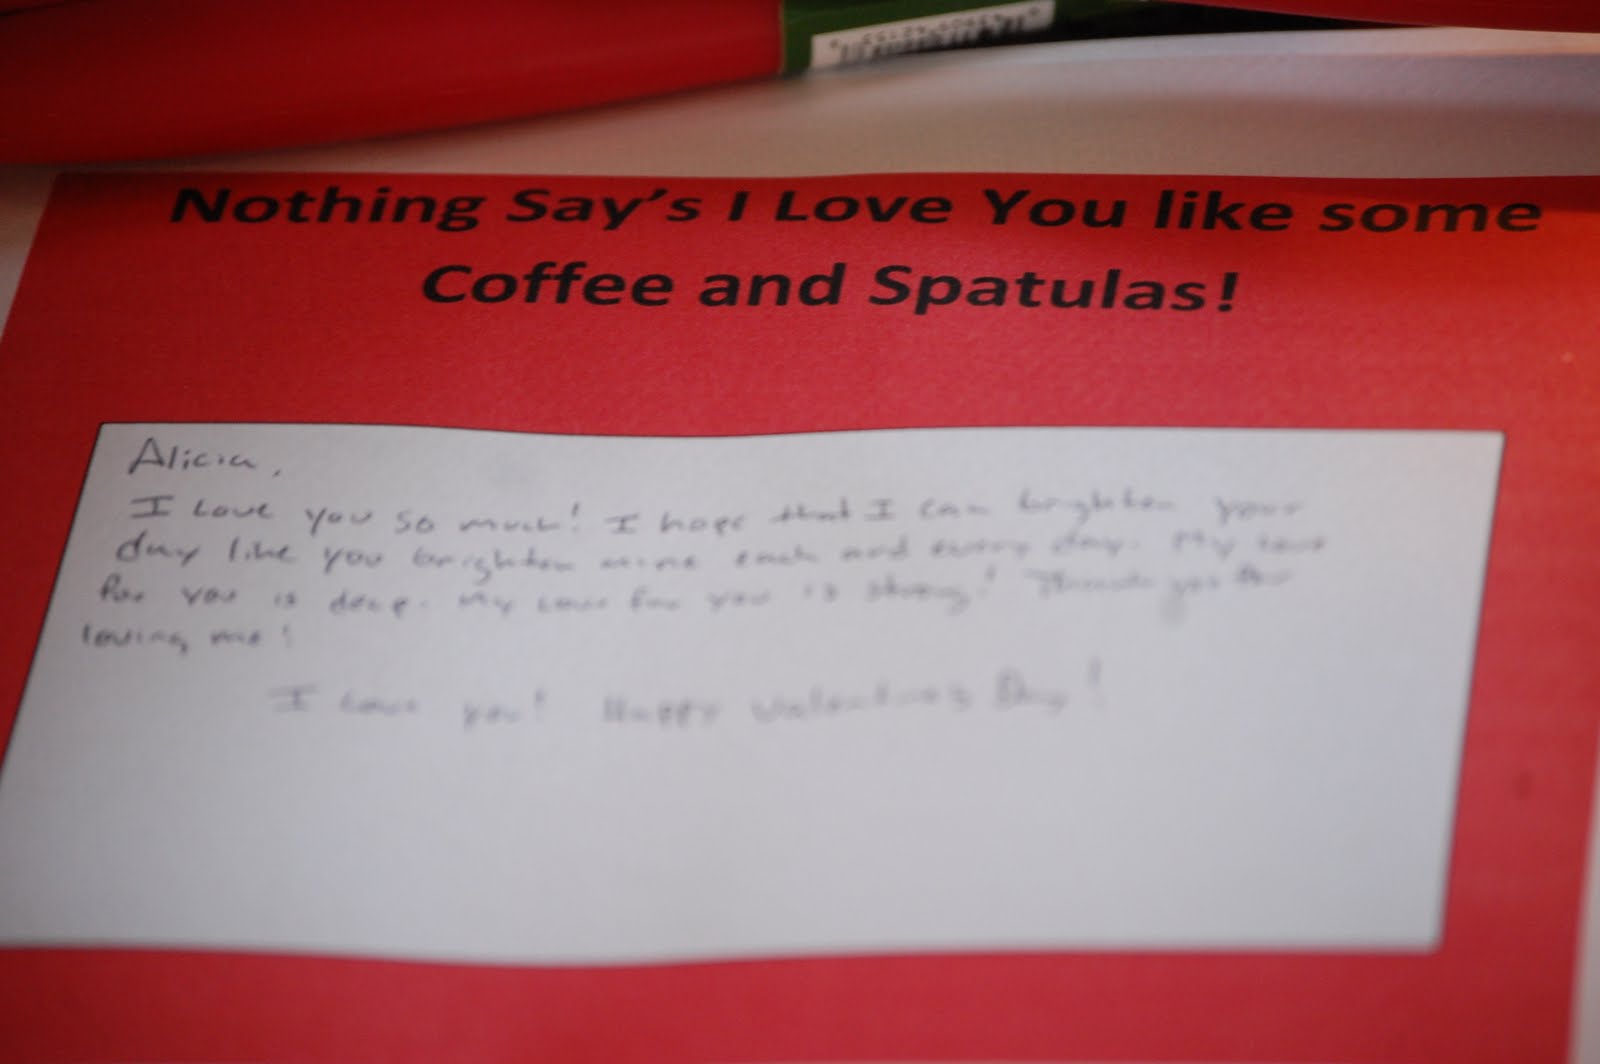 Nothing Say's I Love You like some
Coffee and Spatulas!
Alicia,
I Love you so much! I hope that I can brighten your
day like you brighten mine each and every day. My love
for you is deep. My love for you is strong! Thank you for
loving me!
I Love you! Happy Valentines Day!